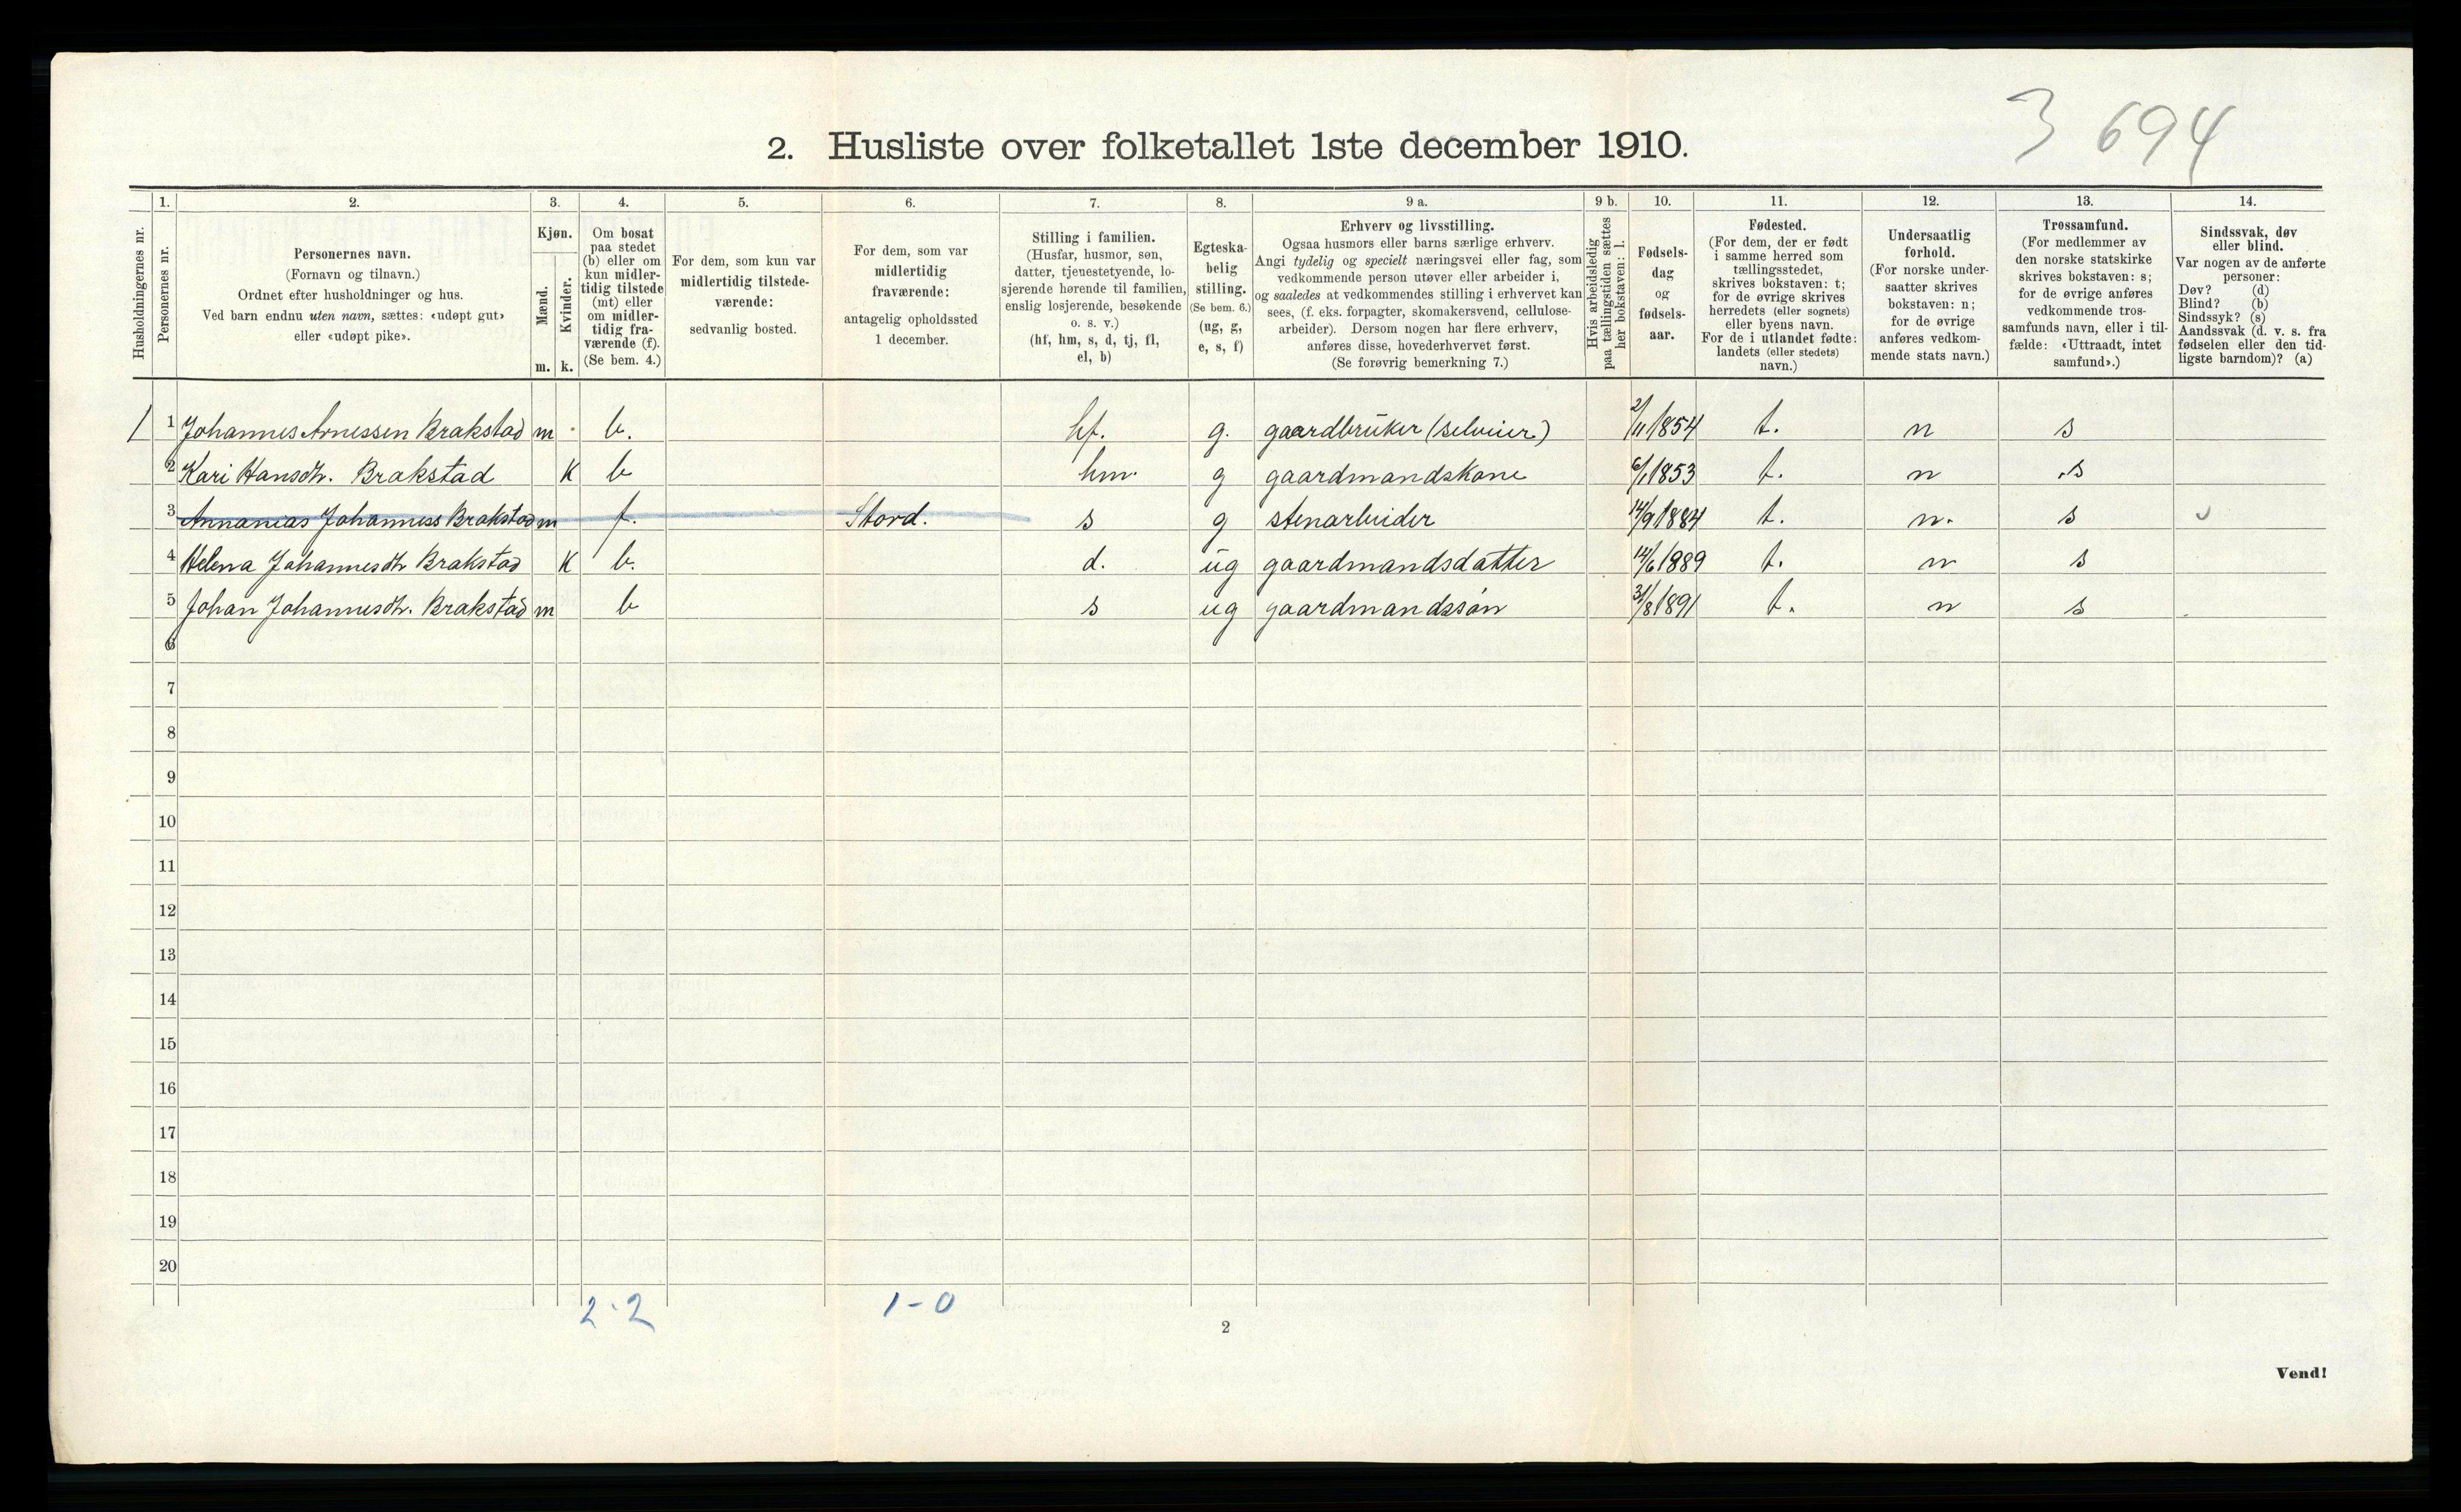 3 694
2. Husliste over folketallet 1ste december 1910.
Husholdningernes nr.
1.
Personernes nr.
2.
Personernes navn.
(Fornavn og tilnavn.)
Ordnet efter husholdninger og hus.
Ved barn endnu uten navn, sættes: «udøpt gut»
eller «udøpt pike».
3.
Kjøn.
Mænd.
Kvinder.
m. k.
4.
Om bosat
paa stedet
(b) eller om
kun midler-
tidig tilstede
(mt) eller
om midler-
tidig fra-
værende (f).
(Se bem. 4.)
5.
For dem, som kun var
midlertidig tilstede-
værende:
sedvanlig bosted.
6.
For dem, som var
midlertidig
fraværende:
antagelig opholdssted
1 december.
7.
Stilling i familien.
(Husfar, husmor, søn,
datter, tjenestetyende, lo-
sjerende hørende til familien,
enslig losjerende, besøkende
o. s. v.)
(hf, hm, s, d, tj, fl,
el, b)
8.
Egteska-
belig
stilling.
(Se bem. 6.)
(ug, g,
e, s, f)
9 a.
Erhverv og livsstilling.
Ogsaa husmors eller barns særlige erhverv.
Angi tydelig og specielt næringsvei eller fag, som
vedkommende person utøver eller arbeider i,
og saaledes at vedkommendes stilling i erhvervet kan
sees, (f. eks. forpagter, skomakersvend, cellulose-
arbeider). Dersom nogen har flere erhverv,
anføres disse, hovederhvervet først.
(Se forøvrig bemerkning 7.)
9 b.
Hvis arbeidsledig
paa tællingstiden sættes
her bokstaven: l.
10.
Fødsels-
dag
og
fødsels-
aar.
11.
Fødested.
(For dem, der er født
i samme herred som
tællingsstedet,
skrives bokstaven: t;
for de øvrige skrives
herredets (eller sognets)
eller byens navn.
For de i utlandet fødte:
landets (eller stedets)
navn.)
12.
Undersaatlig
forhold.
(For norske under-
saatter skrives
bokstaven: n;
for de øvrige
anføres vedkom-
mende stats navn.)
13.
Trossamfund.
(For medlemmer av
den norske statskirke
skrives bokstaven: s;
for de øvrige anføres
vedkommende tros-
samfunds navn, eller i til-
fælde: «Uttraadt, intet
samfund».)
14.
Sindssvak, døv
eller blind.
Var nogen av de anførte
personer:
Døv? (d)
Blind? (b)
Sindssyk? (s)
Aandssvak (d. v. s. fra
fødselen eller den tid-
ligste barndom)? (a)
1 1 Johannes Arnessen Brakstad m b. hf. g. gaardbruker (selveier) 2/11 1854 t. n s
2 Kari Hansdtr. Brakstad K b hm. g gaardmandskone 6/1 1853 t. n s
3 Annanias Johanness Brakstad m f. Stord. s g stenarbeider 14/9 1884 t. n. s
4 Helena Johannesdtr Brakstad K b. d. ug gaardmandsdatter 14/6 1889 t. n s
5 Johan Johannesdtr. Brakstad m b s ug gaardmandssøn 31/8 1891 t. n s
6
7
8
9
10
11
12
13
14
15
16
17
18
19
20
2 · 2 1 - 0
2
Vend!